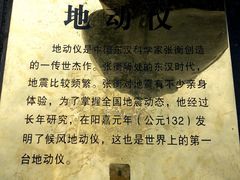 地动仪
地动仪是中国东汉科学家张衡创造
的一传世杰作。张衡所处的东汉时代，
地震比较频繁。张衡对地震有不少亲身
体验，为了掌握全国地震动态，他经过
长年研究，在阳嘉元年（公元132）发
明了候风地动仪，这也是世界上的第一
台地动仪。